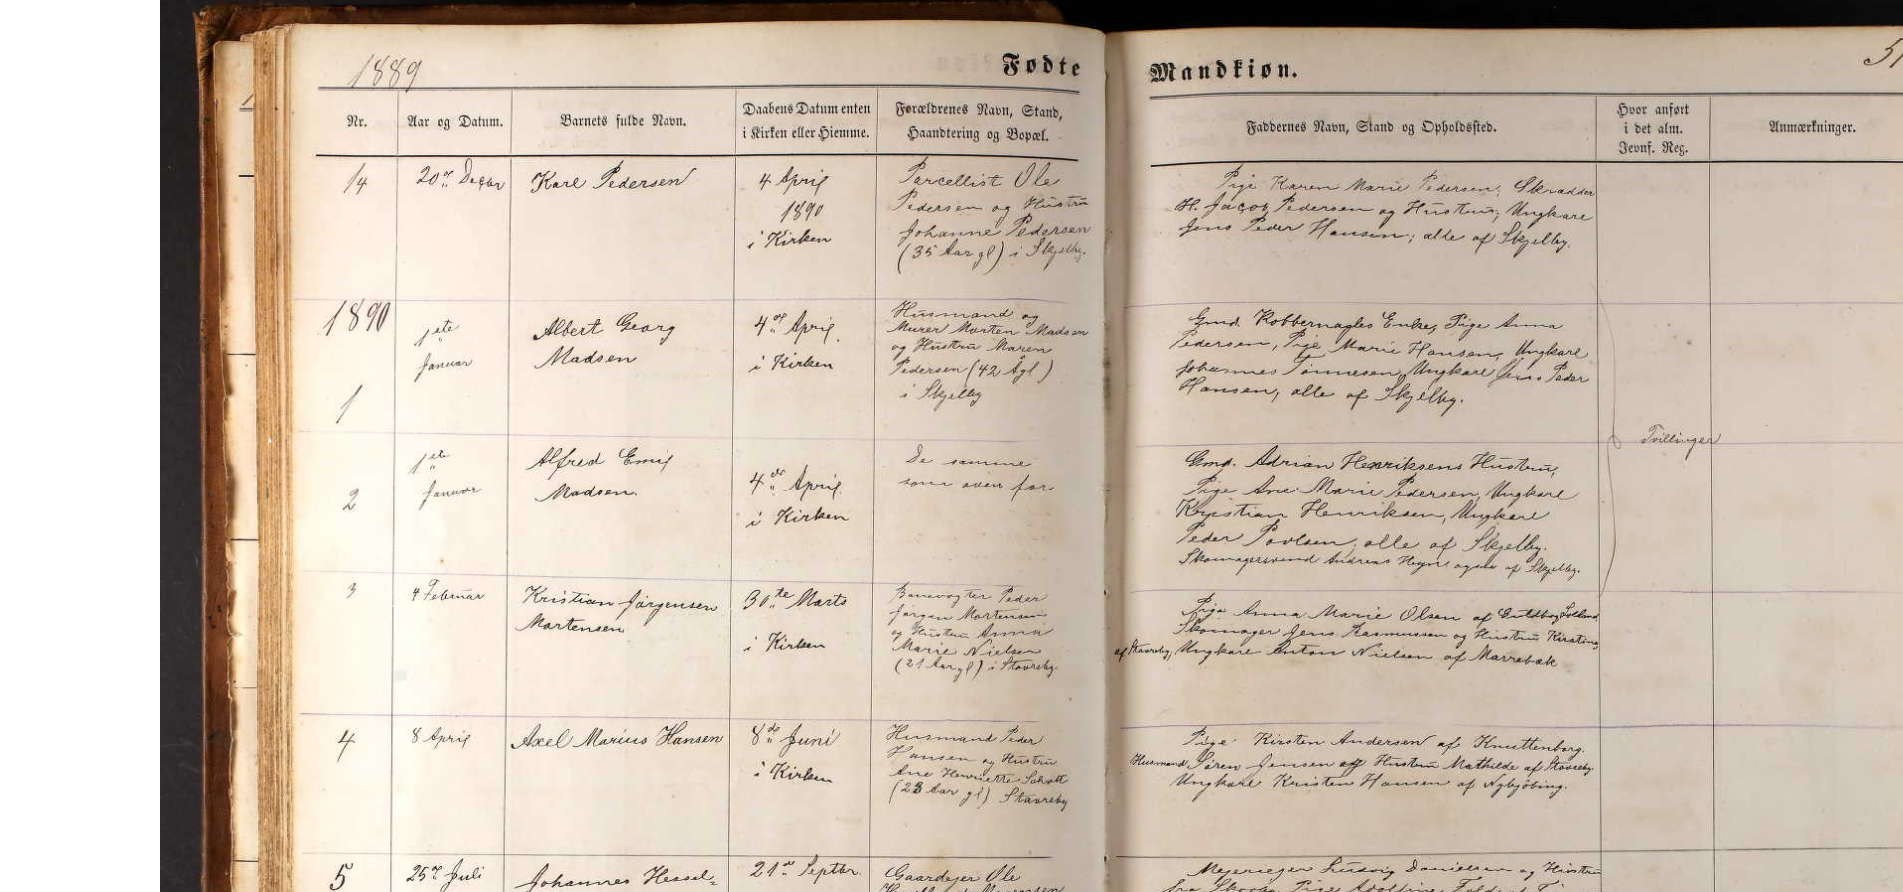 1889
Fødte
Mandkiøn.
51
Nr.
Aar og Datum.
Barnets fulde Navn.
Daabens Datum enten
i Kirken eller Hiemme.
Forældrenes Navn, Stand,
Haandtering og Bopæl.
Faddernes Navn, Stand og Opholdssted.
Hvor anført
i det alm.
Jevnf. Reg.
Anmærkninger.
14
20de Decbr
Karl Pedersen
4 April
1890
i Kirken
Parcellist Ole
Pedersen og Hustru
Johanne Pedersen
(35 Aar gl) i Skjelby.
Pige Karen Marie Pedersen, Skrædder
H. Jacob Pedersen og Hustru, Ungkarl
Jens Peder Hansen; alle af Skjelby.
1890
1
1ste
Januar
Albert Georg
Madsen
4de April
i Kirken
Husmand og
Murer Morten Madsen
og Hustru Maren
Pedersen (42 Agl)
i Skjelby
Gmd. Kobbernagles Enke, Pige Anna
Pedersen, Pige Marie Hansen, Ungkarl
Johannes Tønnesen, Ungkarl Jens Peder
Hansen, alle af Skjelby.
Tvillinger
2
1ste
Januar
Alfred Emil
Madsen
4de April
i Kirken
De samme
som oven for
Gmd. Adrian Henriksens Hustru,
Pige Ane Marie Pedersen, Ungkarl
Kristian Henriksen, Ungkarl
Peder Povlsen, alle af Skjelby.
Skomagersvend Andreas ogsaa af Skjelby.
3
4 Februar
Kristian Jørgensen
Mortensen
30te Marts
i Kirken
Banevogter Peder
Jørgen Mortensen
og Hustru Anna
Marie Nielsen
(21 Aar gl) i Stavreby.
Pige Anna Marie Olsen af Guldborg Lolland
Skomager Jens Rasmussen og Hustru Kirstine
af Stavreby, Ungkarl Anton Nielsen af Marrebæk
4
8 April
Axel Marius Hansen
8de Juni
i Kirken
Husmand Peder
Hansen og Hustru
Ane Henriette
(23 Aar gl) Stavreby
Pige Kirsten Andersen af Knuttenborg.
Husmand Søren Jensen og Hustru Mathilde af Stavreby.
Ungkarl Kristen Hansen af Nykjøbing.
5
25de Juli
Johannes Hessel-
21de Septbr.
Gaardejer Ole
Mejeriejer Ludvig Danielsen og Hustru